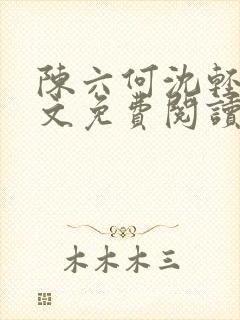 陳六何沈輕
文免費閱讀
木木木三